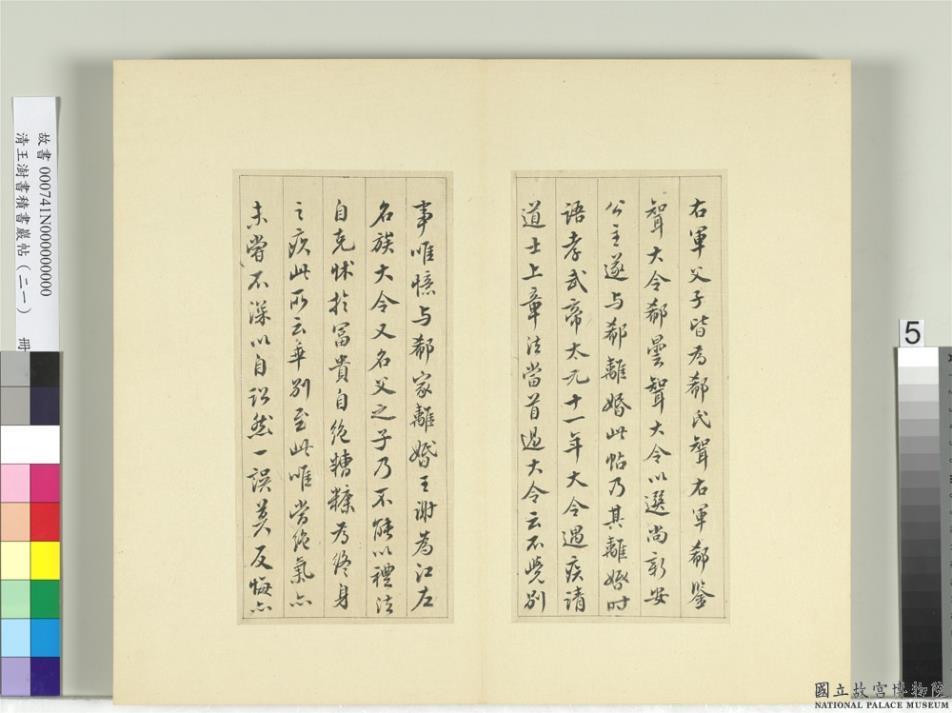 右軍父子皆為郗氏聟右軍郗鑒
聟大令郗曇聟大令以選尚新安
公主遂与郗離婚此帖乃其離婚時
語孝武帝太元十一年大令遇疾請
道士上章法當首過大令云不覺別
事唯憶与郗家離婚王謝為江左
名族大令又名父之子乃不能以禮法
自克怵於冨貴自絶糟糠為終身
之疚此所云乖別至此唯當絶氣亦
未嘗不深以自訟然一誤莫反悔亦
故書 000741N000000000
清王澍書積書巖帖(二一) 冊
5
國立故宮博物院
NATIONAL PALACE MUSEUM